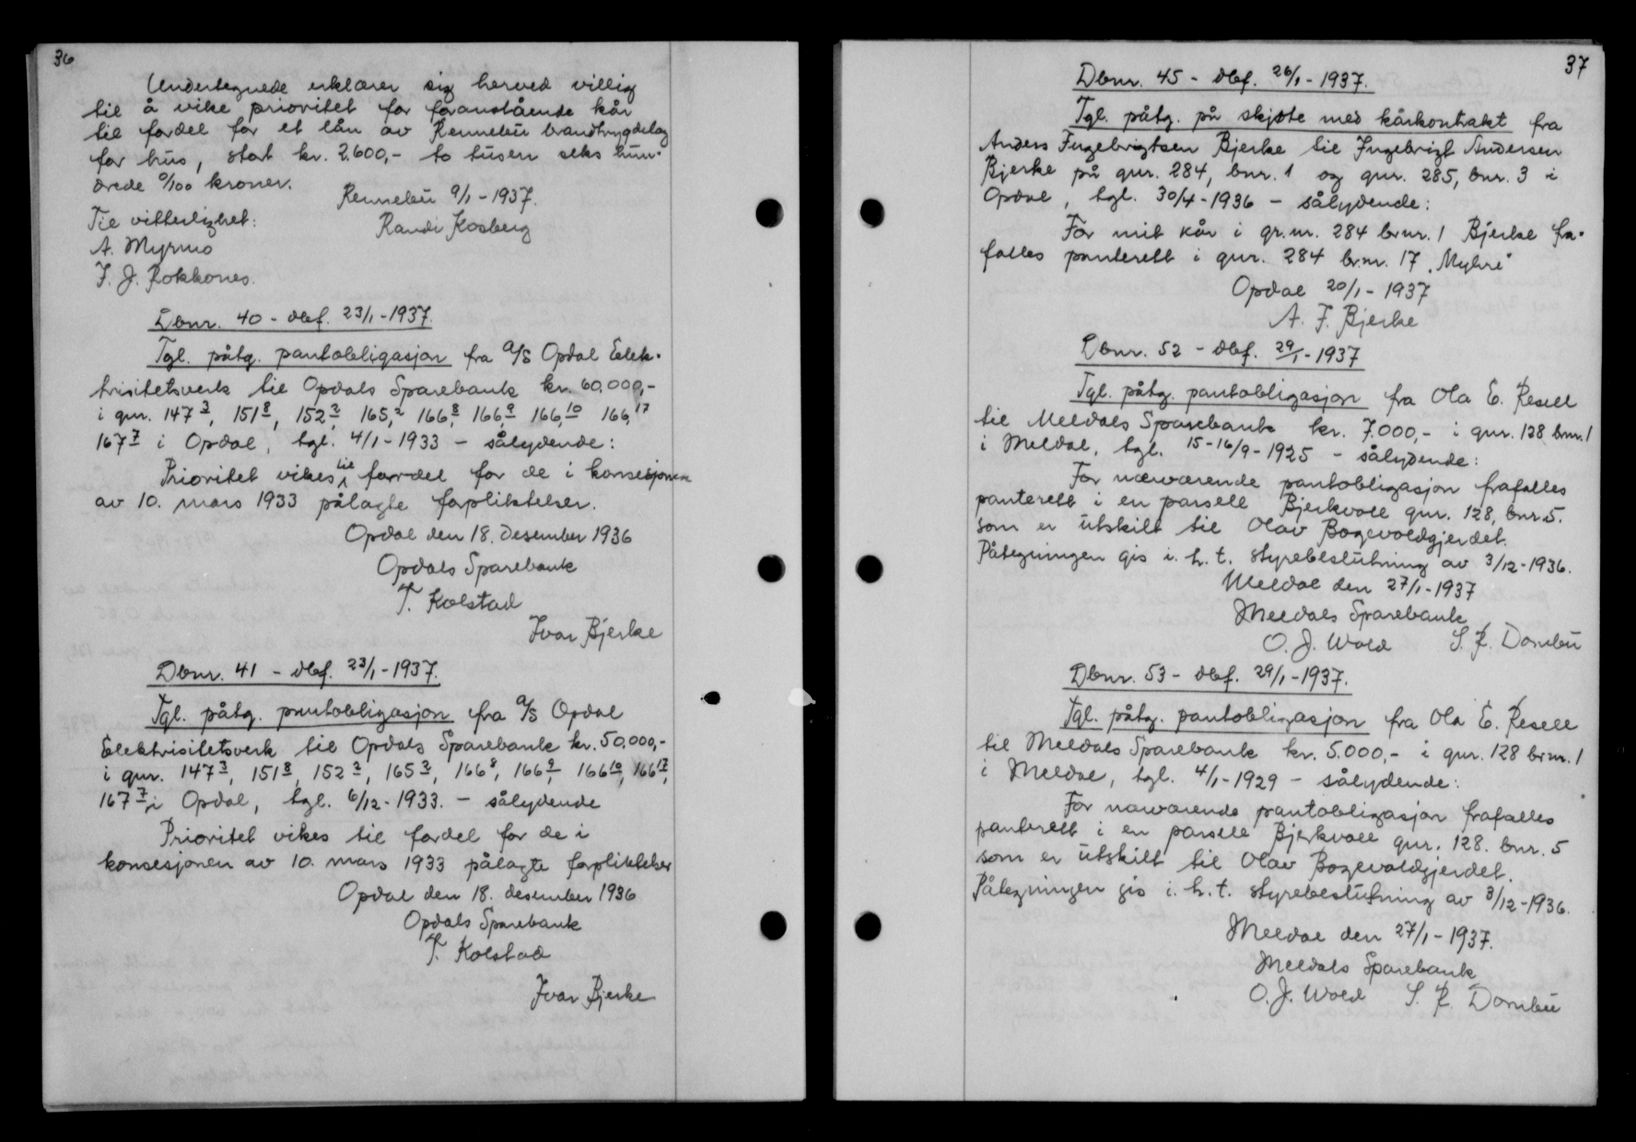 36
Undertegnede erklærer sig herved villig
til å vike prioritet for foranstående kår
til fordel for et lån av Rennebu brandtrygdelag
for hus, stort kr. 2.600,- to tusen seks hun-
drede 0/100 kroner.
Rennebu 9/1 - 1937.
Til vitterlighet:
Randi Kosberg
A. Myrmo
J. J. Rokkones.
Dbnr. 40 - dbf. 23/1 - 1937.
Tgl. påtg. pantobligasjon fra A/S Opdal Elek-
trisitetsverk til Opdals Sparebank kr. 60.000,-
i gnr. 147 3, 151 8, 152 2, 165 2, 166 8, 166 9, 166 10 166 17
167 7 i Opdal, tgl. 4/1 - 1933 - sålydende:
Prioritet vikes til fordel for de i konsesjonen
av 10. mars 1933 pålagte forpliktelser.
Opdal den 18. desember 1936
Opdals Sparebank
T. Kolstad
Ivar Bjerke
Dbnr. 41 - dbf. 23/1 - 1937.
Tgl. påtg. pantobligasjon fra A/S Opdal
Elektrisitetsverk til Opdals Sparebank kr. 50.000,-
i gnr. 147 3, 151 8, 152 2, 165 2, 166 8, 166 9, 166 10, 166 17,
167 7 i Opdal, tgl. 6/12 - 1933. - sålydende
Prioritet vikes til fordel for de i
konsesjonen av 10. mars 1933 pålagte forpliktelser
Opdal den 18. desember 1936
Opdals Sparebank
T. Kolstad
Ivar Bjerke
37
Dbnr. 45 - dbf. 26/1 - 1937.
Tgl. påtg. på skjøte med kårkontrakt fra
Anders Ingebrigtsen Bjerke til Ingebrigt Andersen
Bjerke på gnr. 284, bnr. 1 og gnr. 285, bnr. 3 i
Opdal, tgl. 30/4 - 1936 - sålydende:
For mit kår i gr.nr. 284 br.nr. 1 Bjerke fra-
falles panterett i gnr. 284 br.nr. 17 "Myhre"
Opdal 20/1 - 1937
A. I. Bjerke
Dbnr. 52 - dbf. 29/1 - 1937
Tgl. påtg. pantobligasjon fra Ola E. Resell
til Meldals Sparebank kr. 7.000,- i gnr. 128 brnr. 1
i Meldal, tgl. 15-16/9 - 1925 - sålydende:
For nærværende pantobligasjon frafalles
panterett i en parsell Bjerkvoll gnr. 128, bnr. 5.
som er utskilt til Olav Bogevoldgjerdet.
Påtegningen gis i h. t. styrebeslutning av 3/12 - 1936.
Meldal den 27/1 - 1937
Meldals Sparebank
O. J. Wold S. R. Dombu
Dbnr. 53 - dbf. 29/1 - 1937.
Tgl. påtg. pantobligasjon fra Ola E. Resell
til Meldals Sparebank kr. 5.000,- i gnr. 128 br.nr. 1
i Meldal, tgl. 4/1 - 1929 - sålydende:
For nærværende pantobligasjon frafalles
panterett i en parsell Bjerkvoll gnr. 128. bnr. 5
som er utskilt til Olav Bogevoldgjerdet.
Påtegningen gis i. h. t. styrebeslutning av 3/12 - 1936.
Meldal den 27/1 - 1937.
Meldals Sparebank
O. J. Wold S. R. Dombu